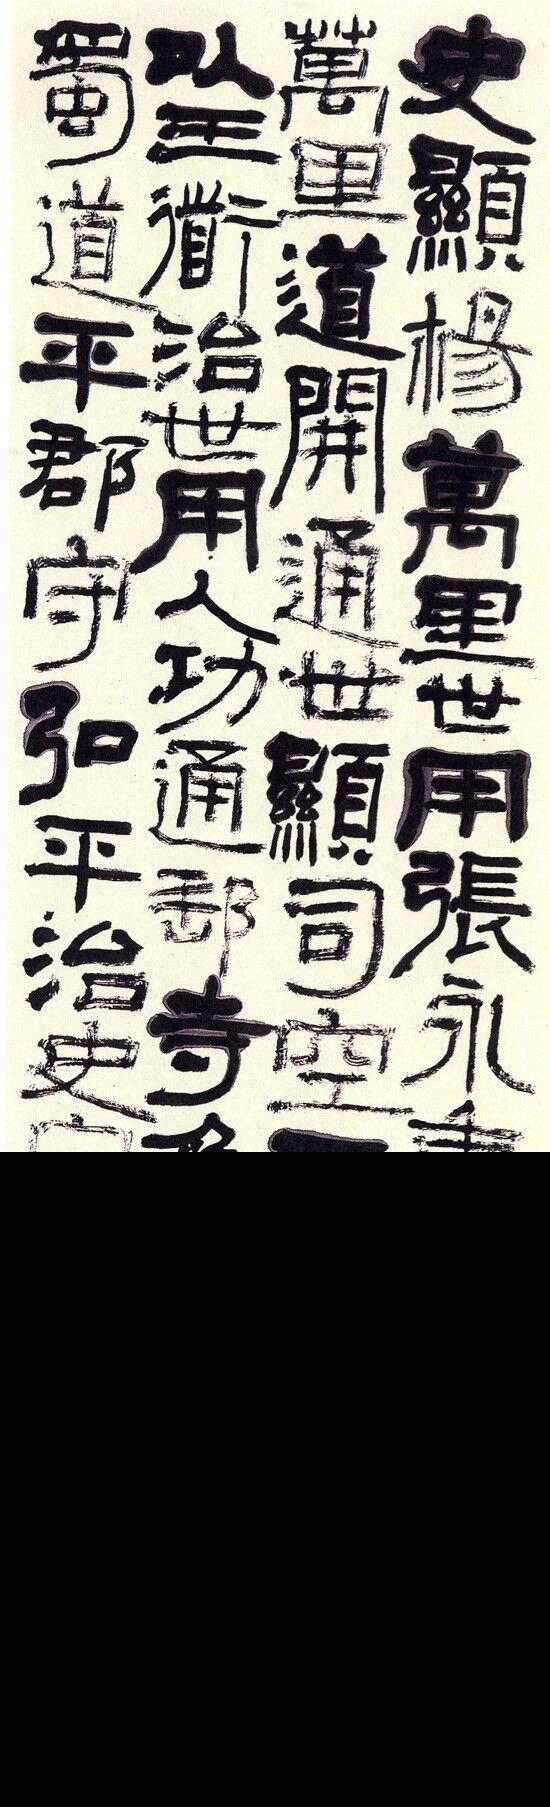 史顯楊萬里世用張永
萬里道開通世顯司空
以王衛治世用人功通郵寺
蜀道平郡守弘平治史